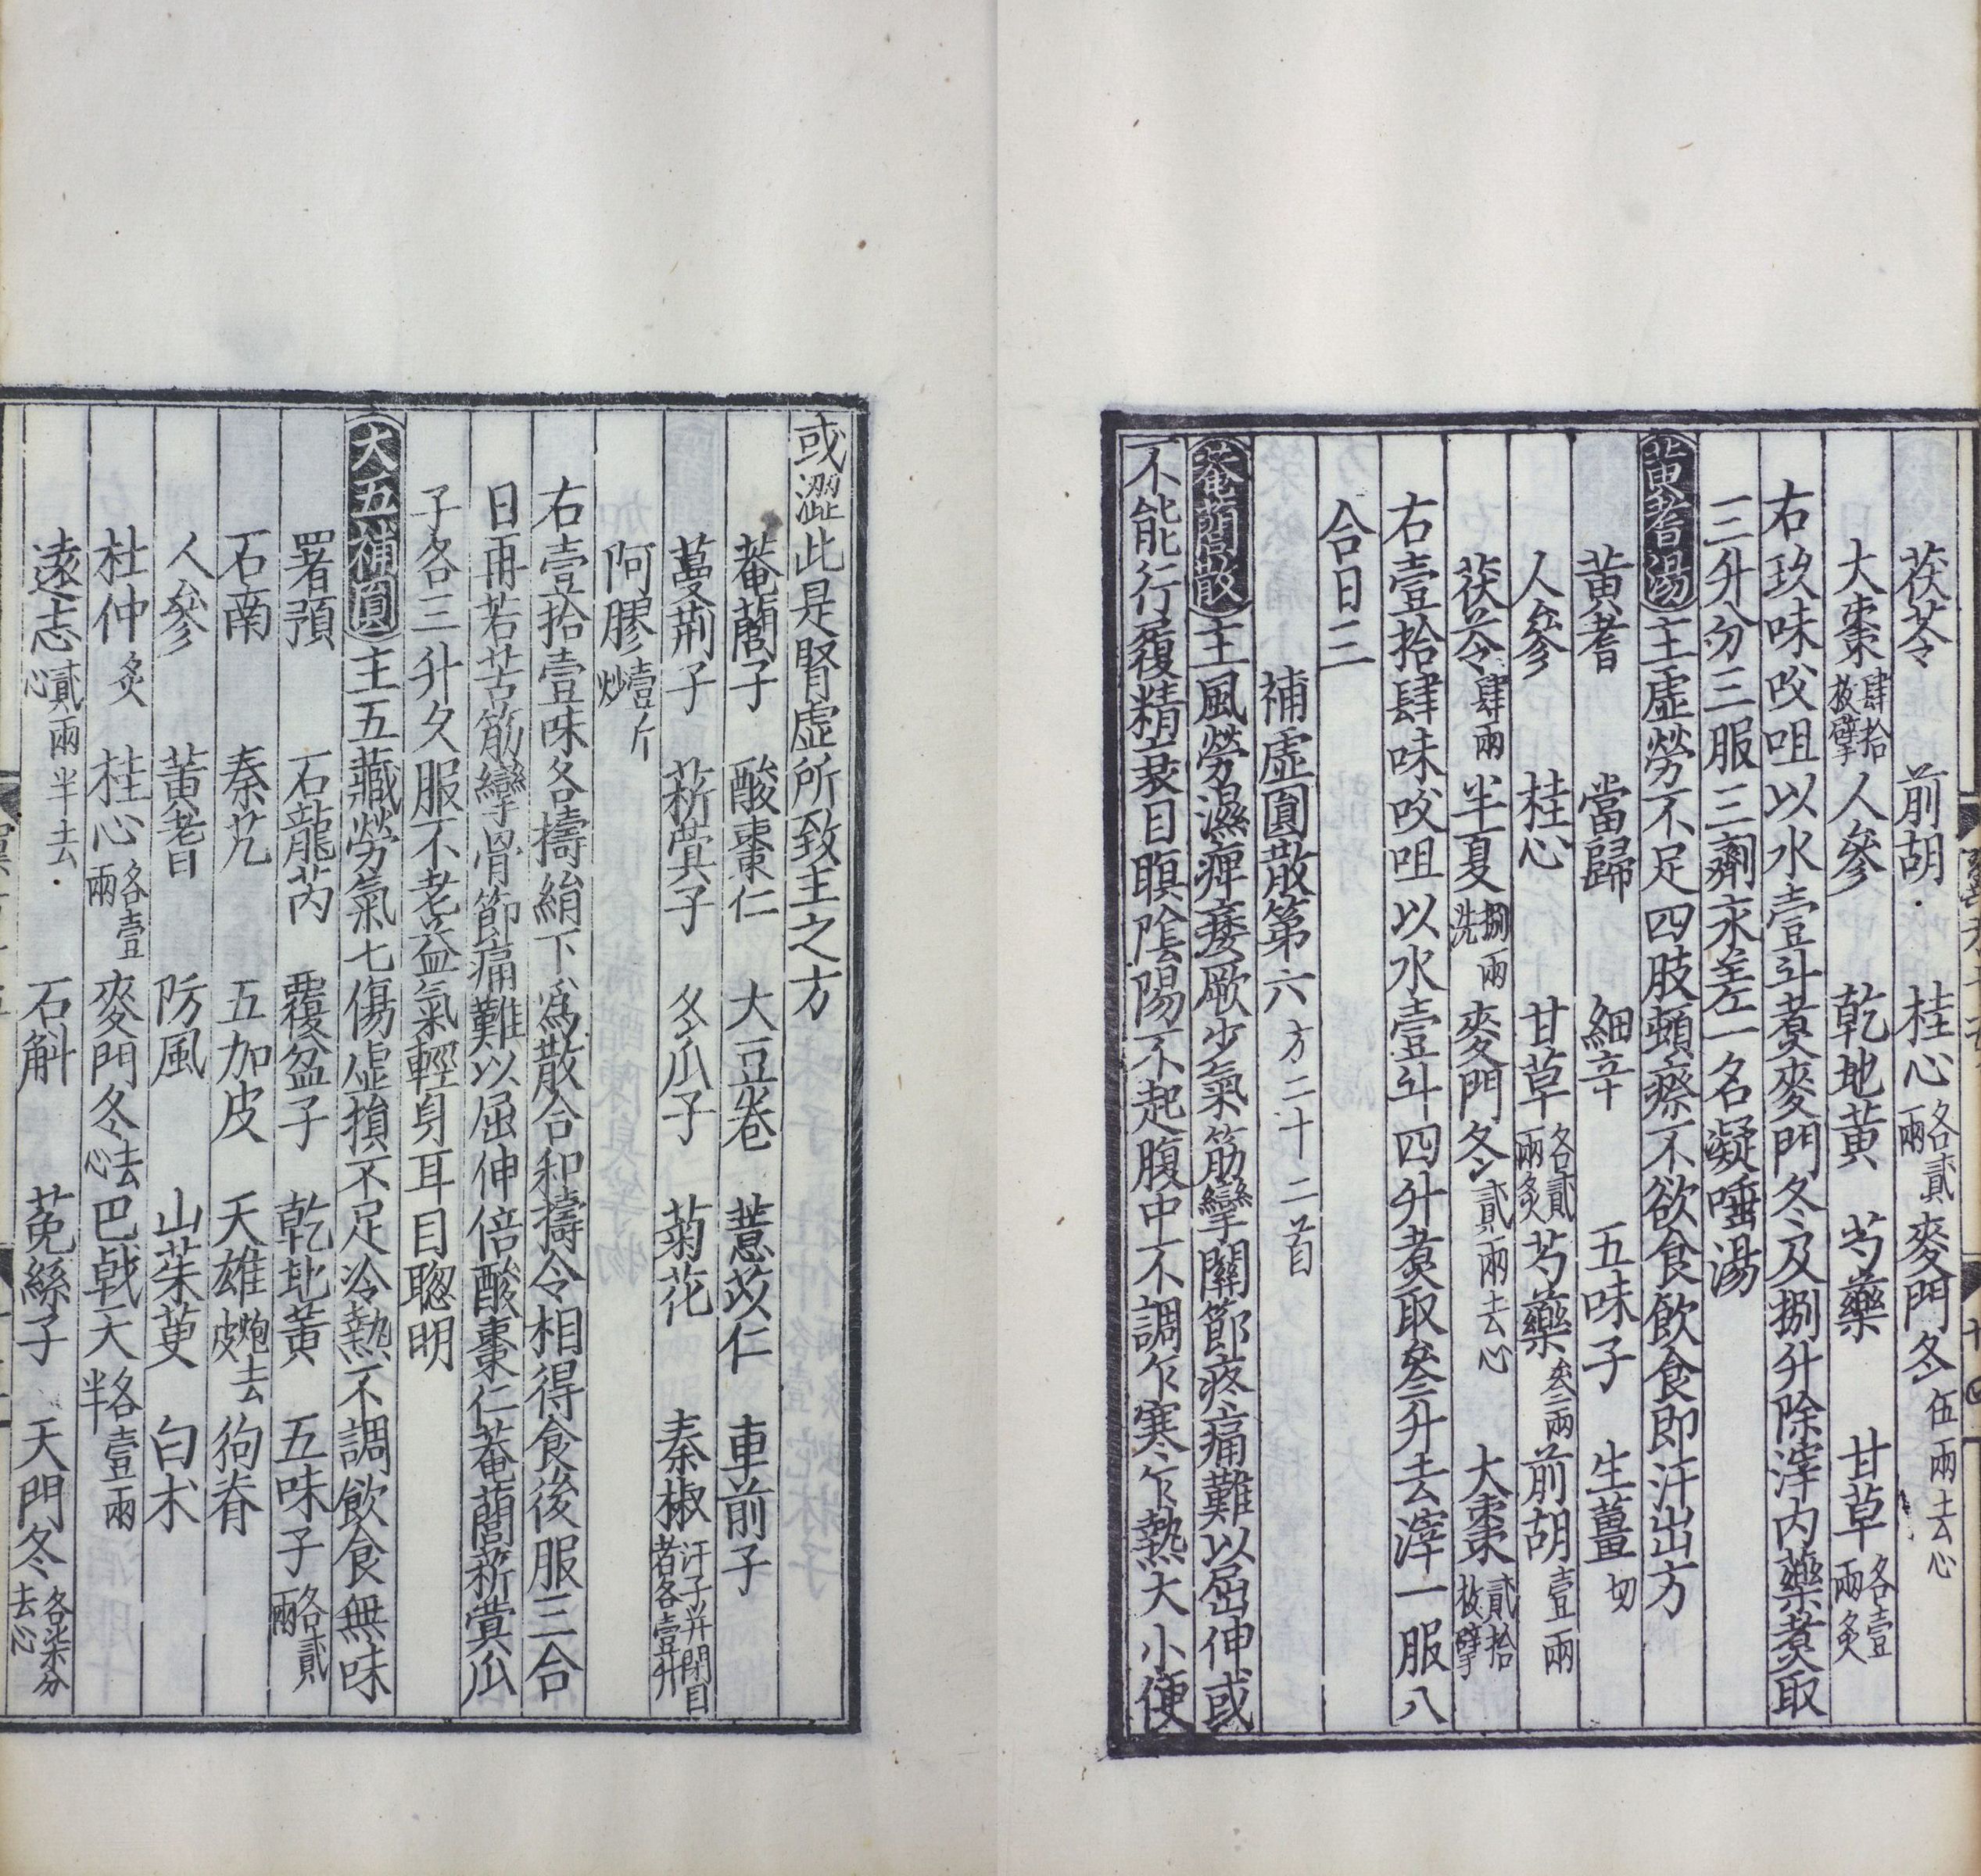 茯苓 前胡 桂心各貳兩 麥門冬伍兩去心
大棗肆拾枚擘 人參 乾地黃 芍藥 甘草各壹兩炙
右玖味㕮咀以水壹斗煮麥門冬及捌升除滓内藥煮取
三升分三服三劑永差一名凝唾湯
黃耆湯主虛勞不足四肢頓瘵不欲食飲食即汗出方
黃耆 當歸 細辛 五味子 生薑切
人參 桂心 甘草各貳兩炙 芍藥叁兩 前胡壹兩
茯苓肆兩 半夏捌兩洗 麥門冬貳兩去心 大棗貳拾枚擘
右壹拾肆味㕮咀以水壹斗四升煮取叁升去滓一服八
合日三
補虛圓散第六方二十二首
菴䕡散主風勞濕痺痿厥少氣筋攣關節疼痛難以屈伸或
不能行履精衰目瞑陰陽不起腹中不調乍寒乍熱大小便
或澀此是腎虛所致主之方
菴䕡子 酸棗仁 大豆卷 薏苡仁 車前子
蔓荆子 菥蓂子 冬瓜子 菊花 秦椒汗子并閉目者各壹升
阿膠壹斤炒
右壹拾壹味各擣絹下爲散合和擣令相得食後服三合
日再若苦筋攣骨節痛難以屈伸倍酸棗仁菴䕡菥蓂瓜
子各三升久服不老益氣輕身耳目聰明
大五補圓主五藏勞氣七傷虛損不足冷熱不調飲食無味
署預 石龍芮 覆盆子 乾地黃 五味子各貳兩
石南 秦艽 五加皮 天雄炮去皮 狗脊
人參 黃耆 防風 山茱萸 白朮
杜仲炙 桂心各壹兩 麥門冬去心 巴戟天各壹兩半
遠志貳兩半去心 石斛 菟絲子 天門冬各柒分去心